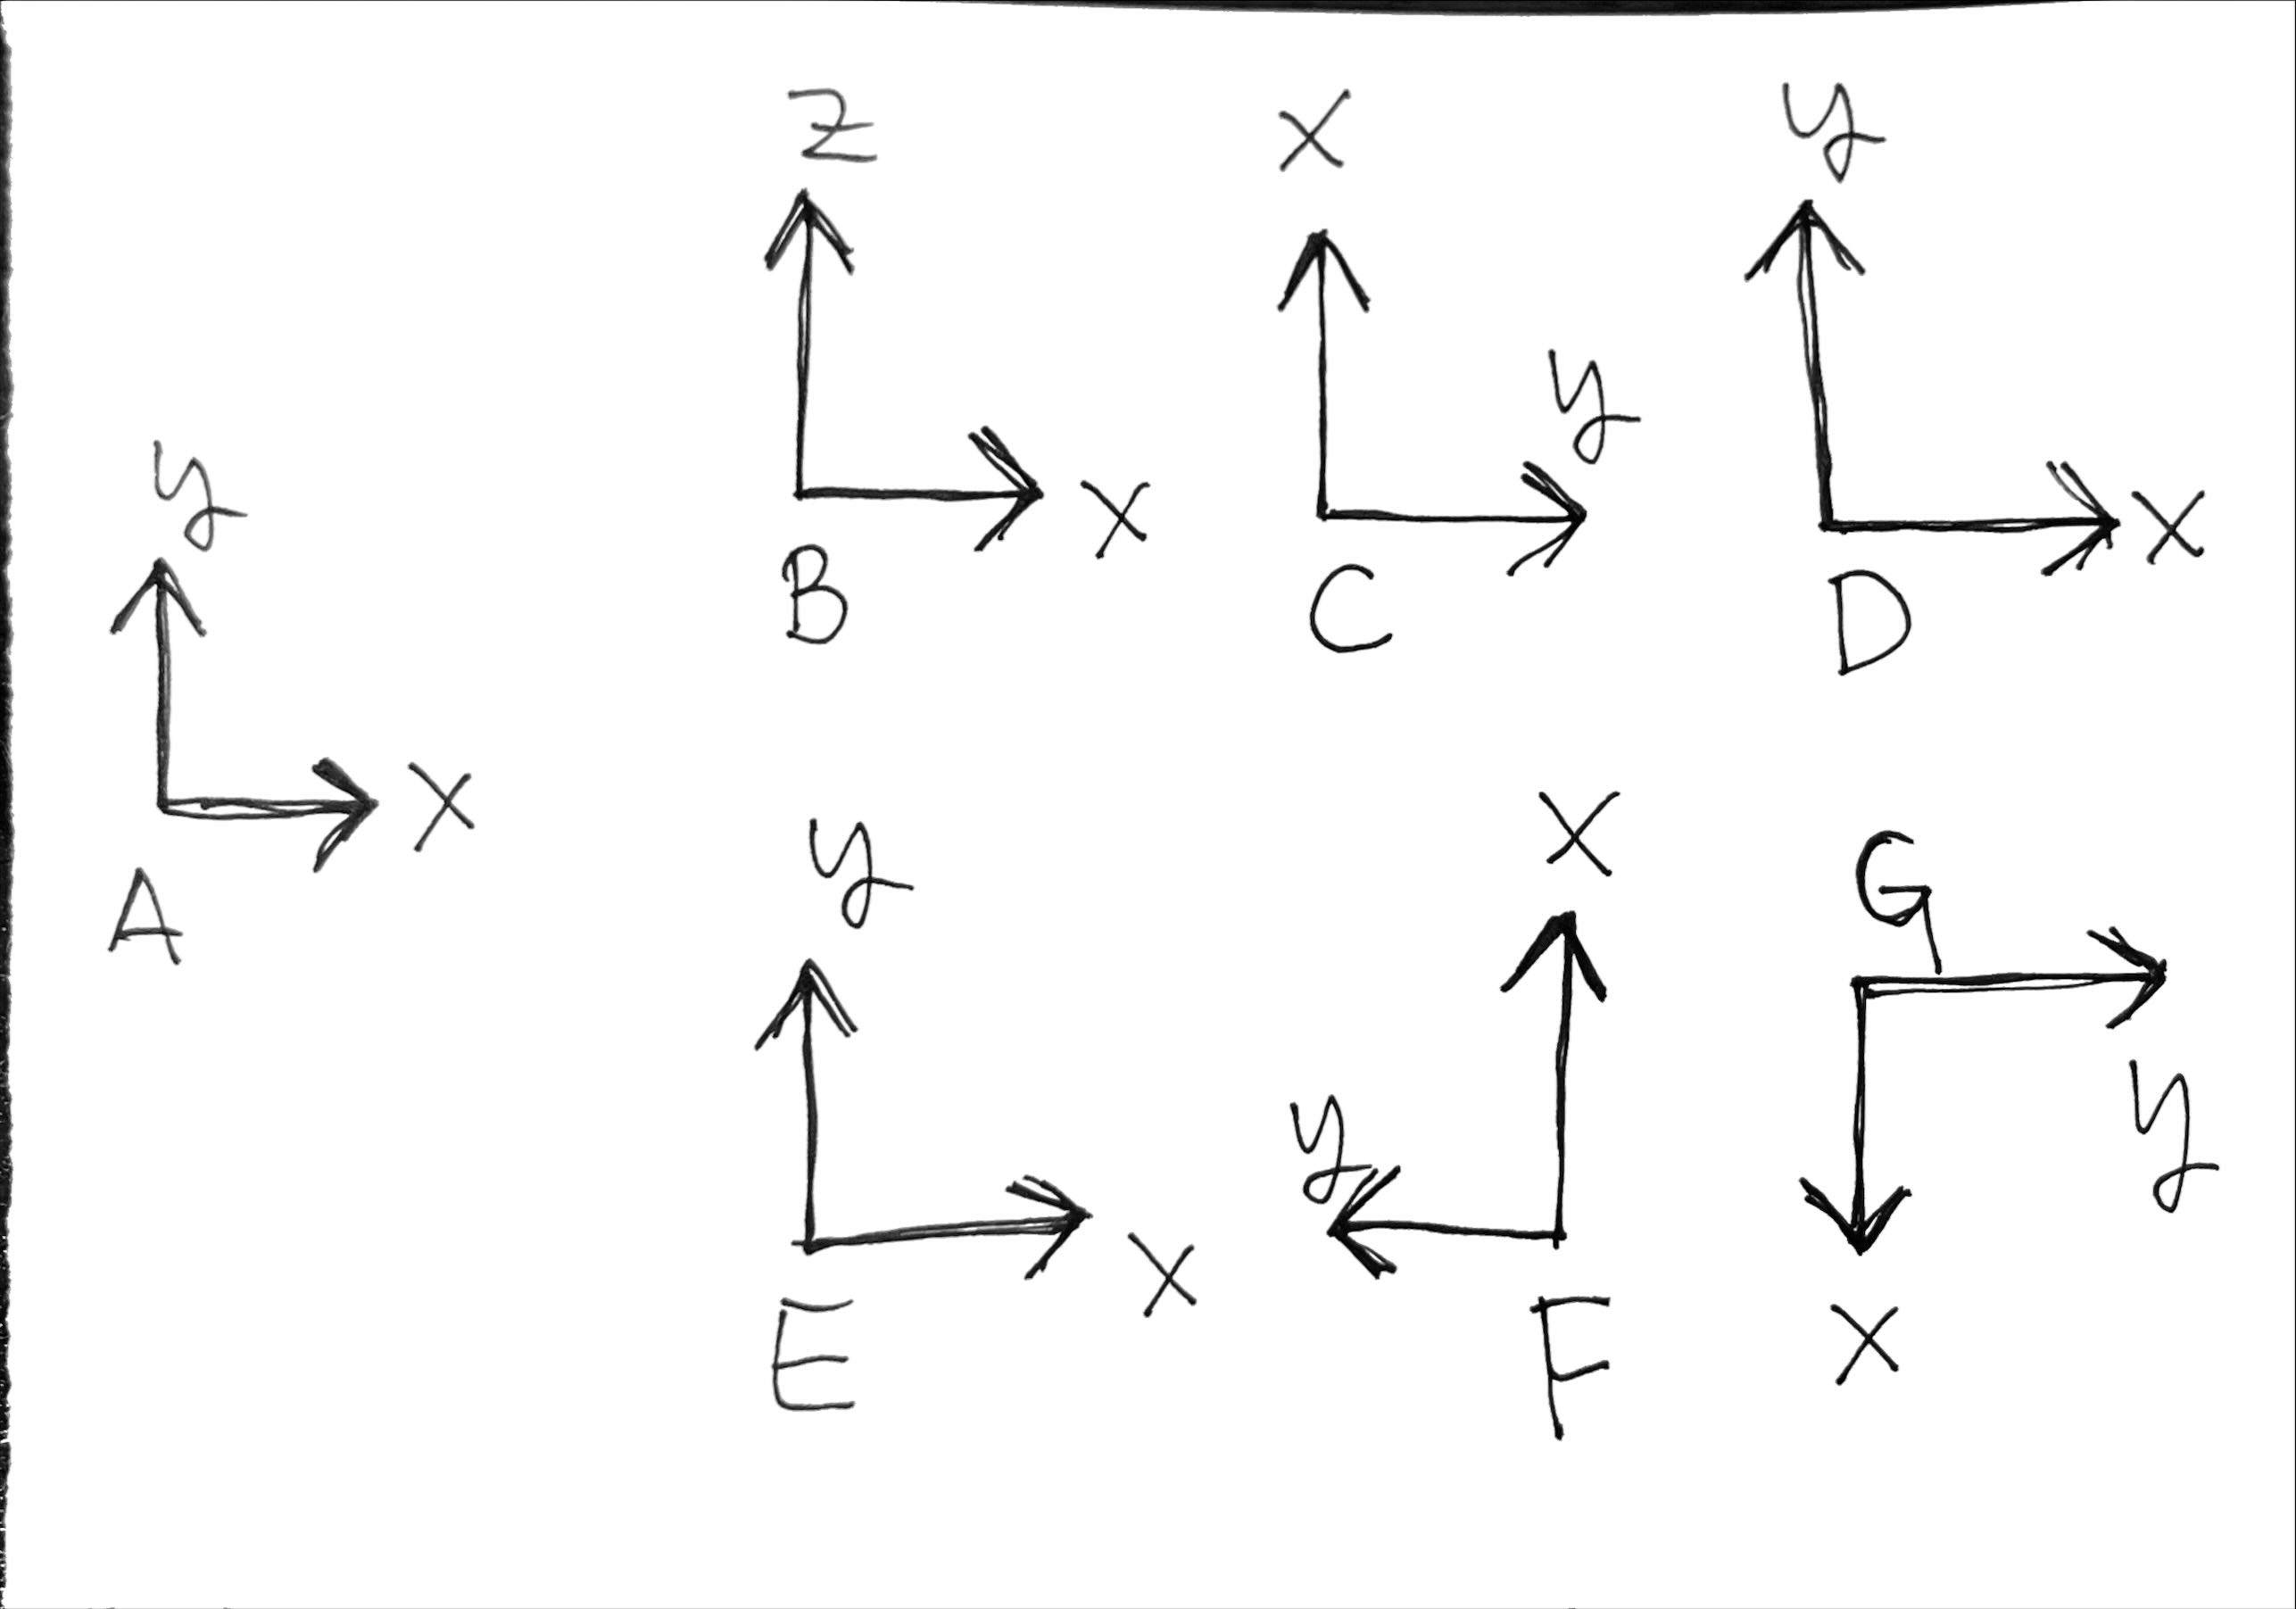 y
x
A
z
x
B
x
y
C
y
x
D
y
x
E
x
y
F
G
y
x